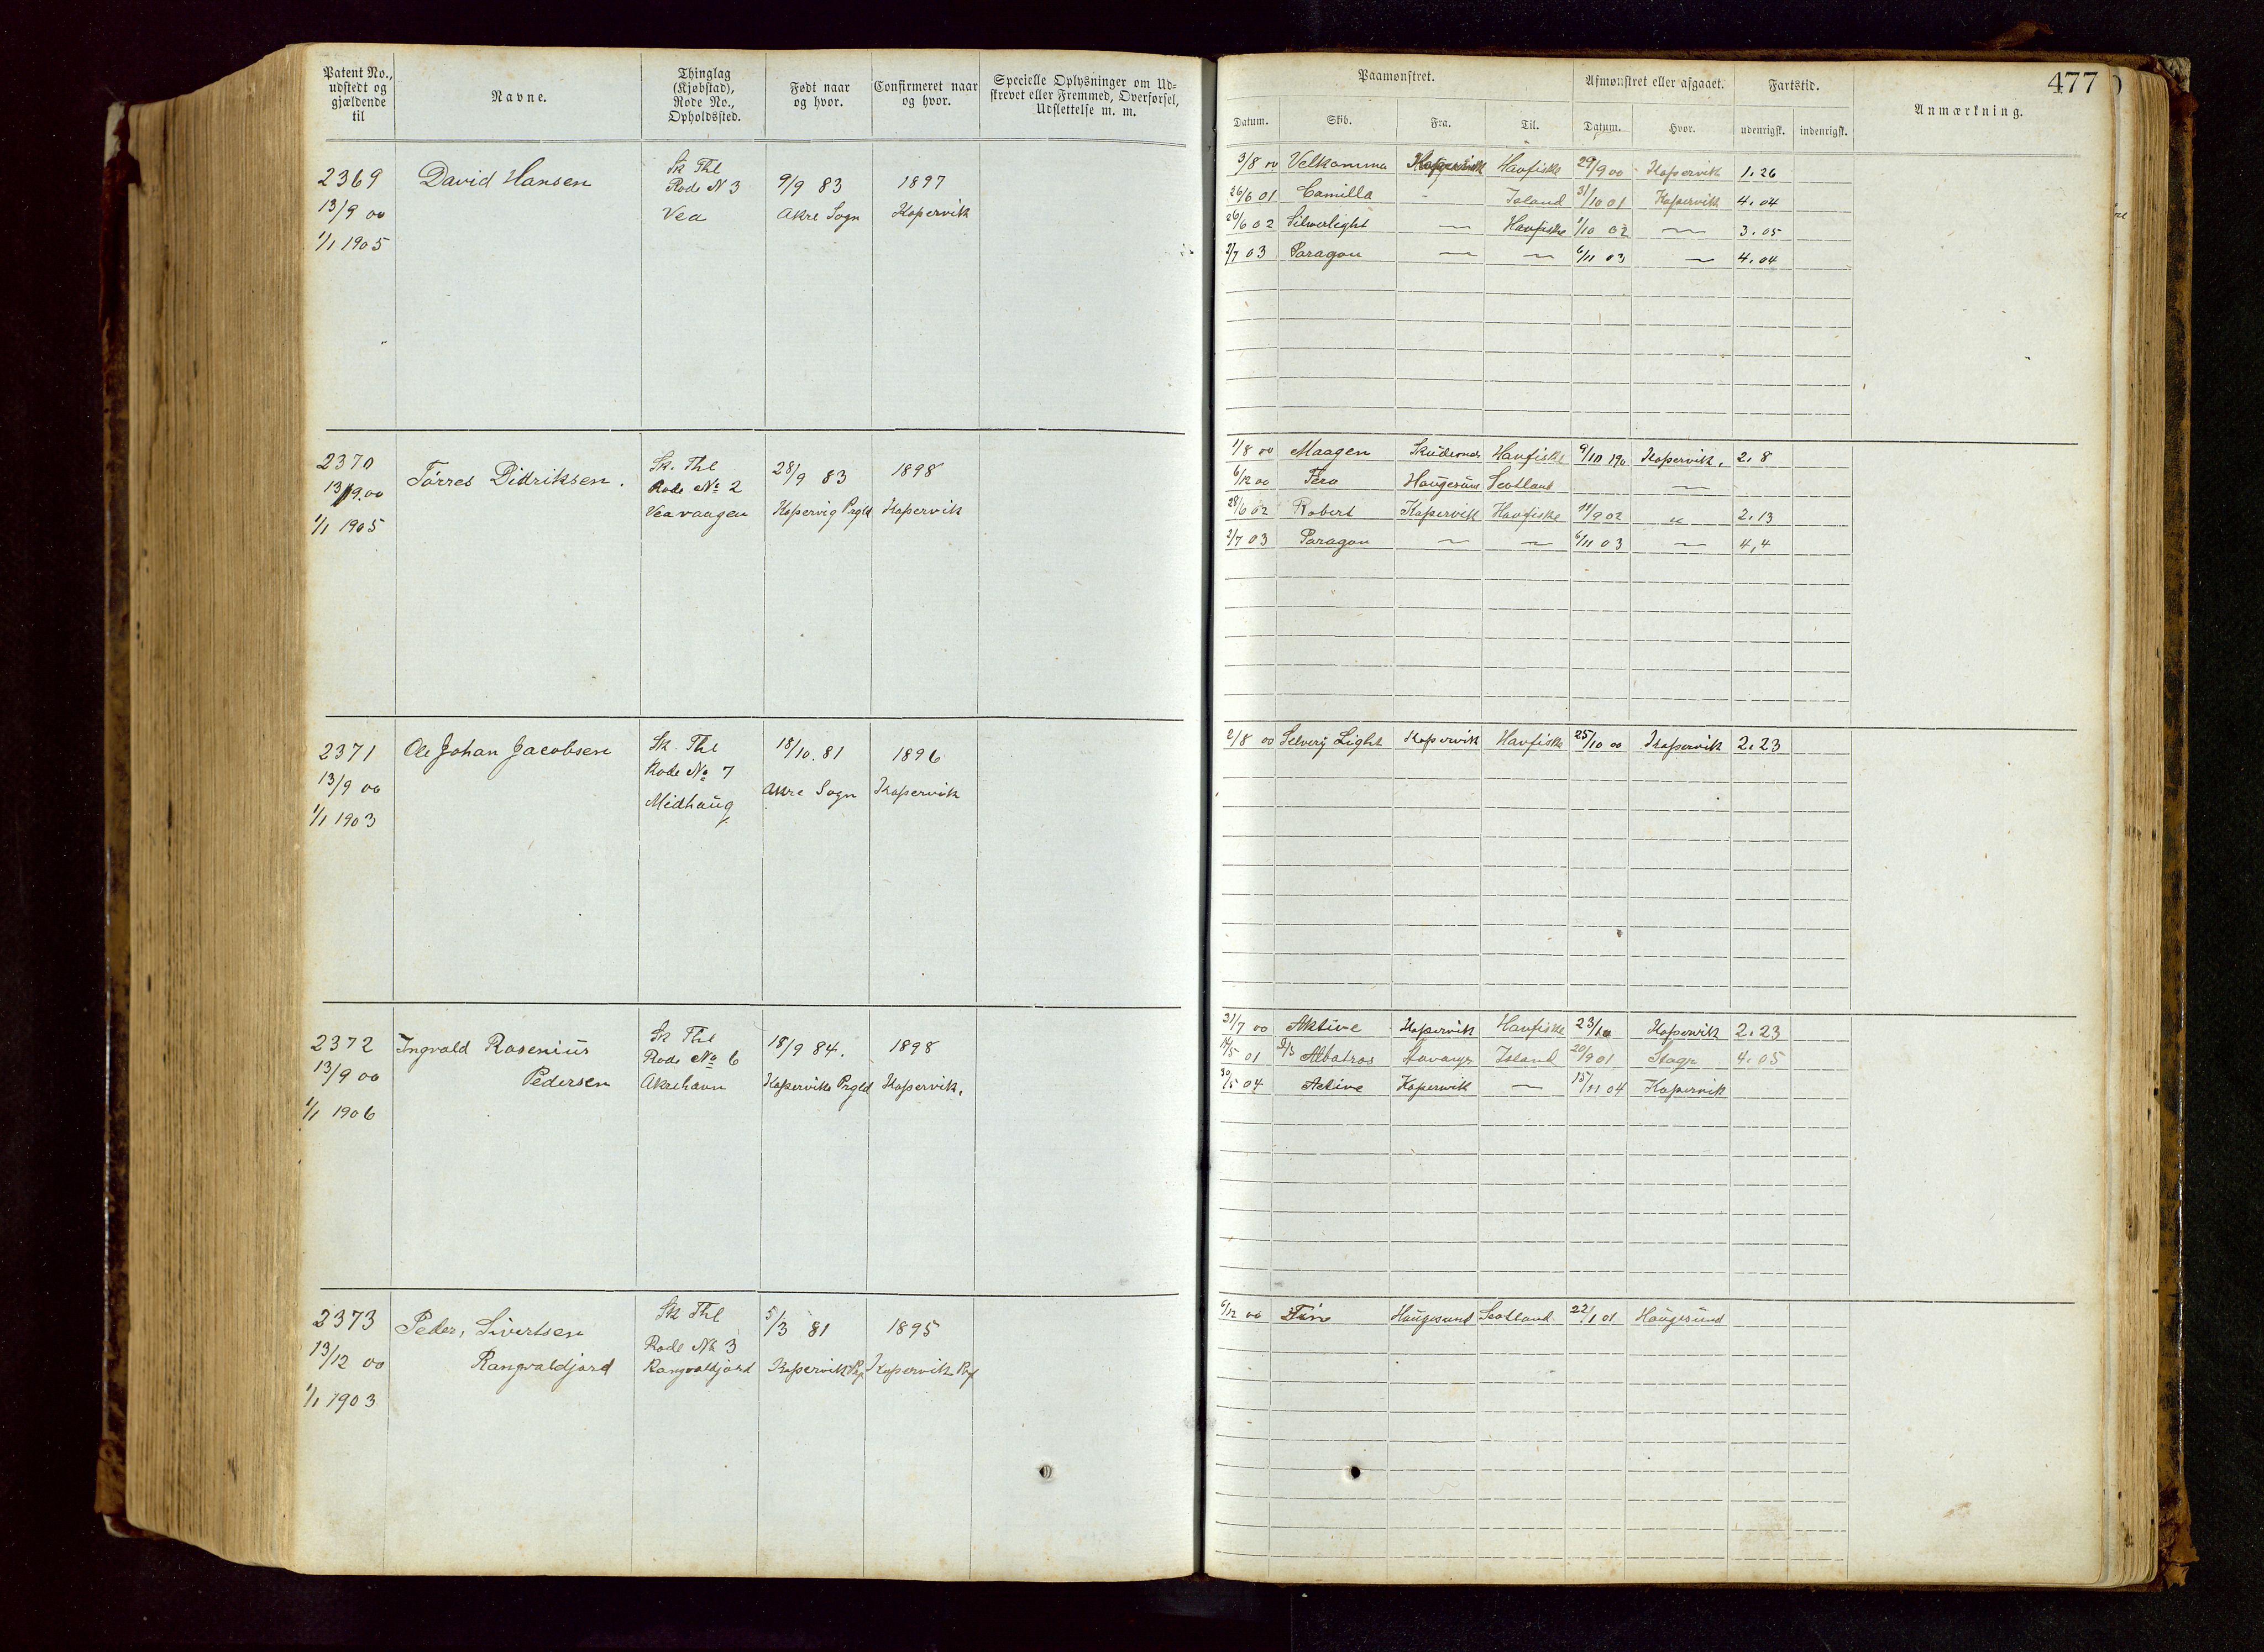 Patent No.,
udstedt og
gjældende
til
Navne.
Thinglag
(Kjøbstad),
Rode No.,
Opholdssted.
Født naar
og hvor.
Confirmeret naar
og hvor.
Specielle Oplysninger om Ud-
skrevet eller Fremmed, Overførsel,
Udslettelse m. m.
Paamønstret.
Afmønstret eller afgaaet.
Fartstid.
477
Datum.
Skib.
Fra.
Til.
Datum.
Hvor.
udenrigsk.
indenrigsk.
Anmærkning.
2369
13/9 00
1/1 1905
David Hansen
Sk Thl
Rode N 3
Vea
9/9 83
Akre Sogn
1897
Kopervik
3/8 00 Velkomma Kopervik Havfiske 29/9 00 Kopervik 1.26
26/6 01 Camilla - Island 31/10 01 Kopervik 4.04
26/6 02 Silverlight — Havfiske 1/10 02 — 3.05
2/7 03 Paragon — — 6/11 03 — 4.04
2370
13/9.00
1/1 1905
Tørres Didriksen.
Sk. Thl
Rode No 2
Veavaagen
28/9 83
Kopervig Prgld
1898
Kopervik
1/8 00 Maagen Skudesnes Havfiske 9/10 190 Kopervik. 2.8
6/12 00 Haugesund Scotland —
28/6 02 Robert Kopervik Havfiske 11/9 02 " 2.13
2/7 03 Paragon — — 6/11 03 — 4,4
2371
13/9 00
1/1 1903
Ole Johan Jacobsen
Sk. Thl
Rode No 7
Midhaug
18/10.81
Akre Sogn
1896
Kopervik
2/8 00 Selvery Light Kopervik Havfiske 25/10 00 Kopervik 2.23
2372
13/9 00
1/1 1906
Ingvald Rosenius
Pedersen
Sk Thl
Rode No 6
Akrehavn
18/9 84.
Kopervik Prgld
1898
Kopervik.
31/7 00 Aktive Kopervik Havfiske Kopervik 2.23
14/5 01 Albatros Stavanger Island 20/9 01 4.05
30/5 04 Active Kopervik — 15/11 04 Kopervik
2373
13/12 00
1/1 1903
Peder, Sivertsen
Rangvaldjord
Sk Thl
Rode No 3
Rangvaldjord
5/3 81
Kopervik
1895
Kopervik
6/12 00 Haugesund Scotland 22/1 01 Haugesund